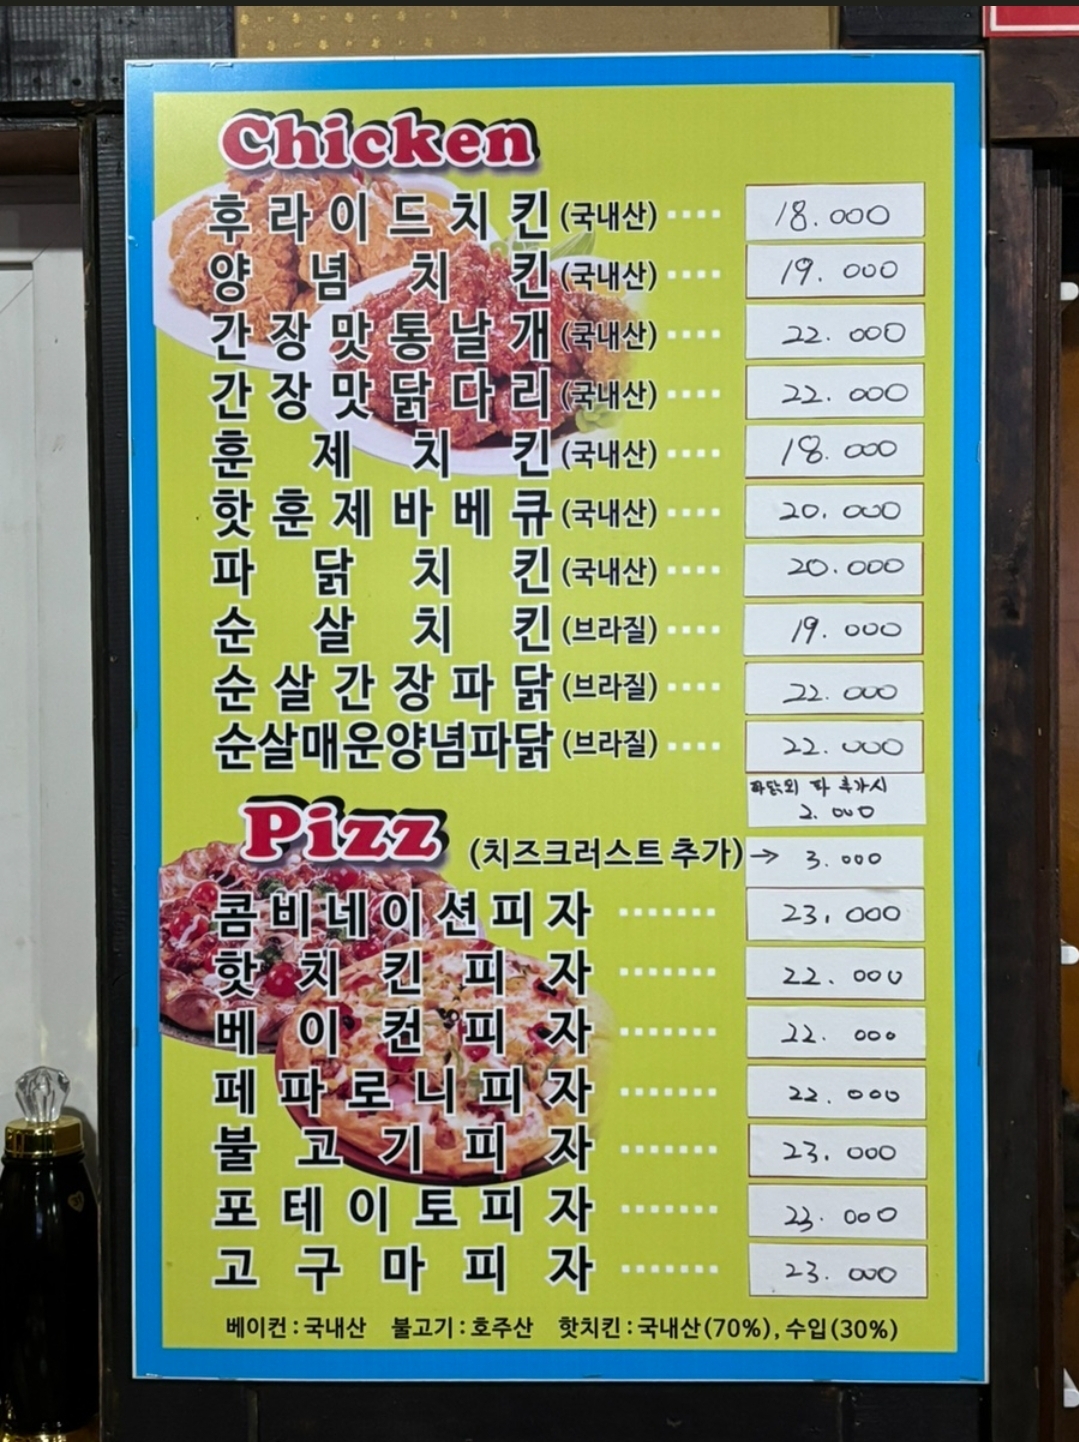 Chicken
후라이드치킨(국내산) 18.000
양념치킨(국내산) 19.000
간장맛통날개(국내산) 22.000
간장맛닭다리(국내산) 22.000
훈제치킨(국내산) 18.000
핫훈제바베큐(국내산) 20.000
파닭치킨(국내산) 20.000
순살치킨(브라질) 19.000
순살간장파닭(브라질) 22.000
순살매운양념파닭(브라질) 22.000
파닭외 파 추가시
2.000
Pizz (치즈크러스트 추가) → 3.000
콤비네이션피자 23.000
핫치킨피자 22.000
베이컨피자 22.000
페파로니피자 22.000
불고기피자 23.000
포테이토피자 23.000
고구마피자 23.000
베이컨:국내산 불고기:호주산 핫치킨:국내산(70%),수입(30%)